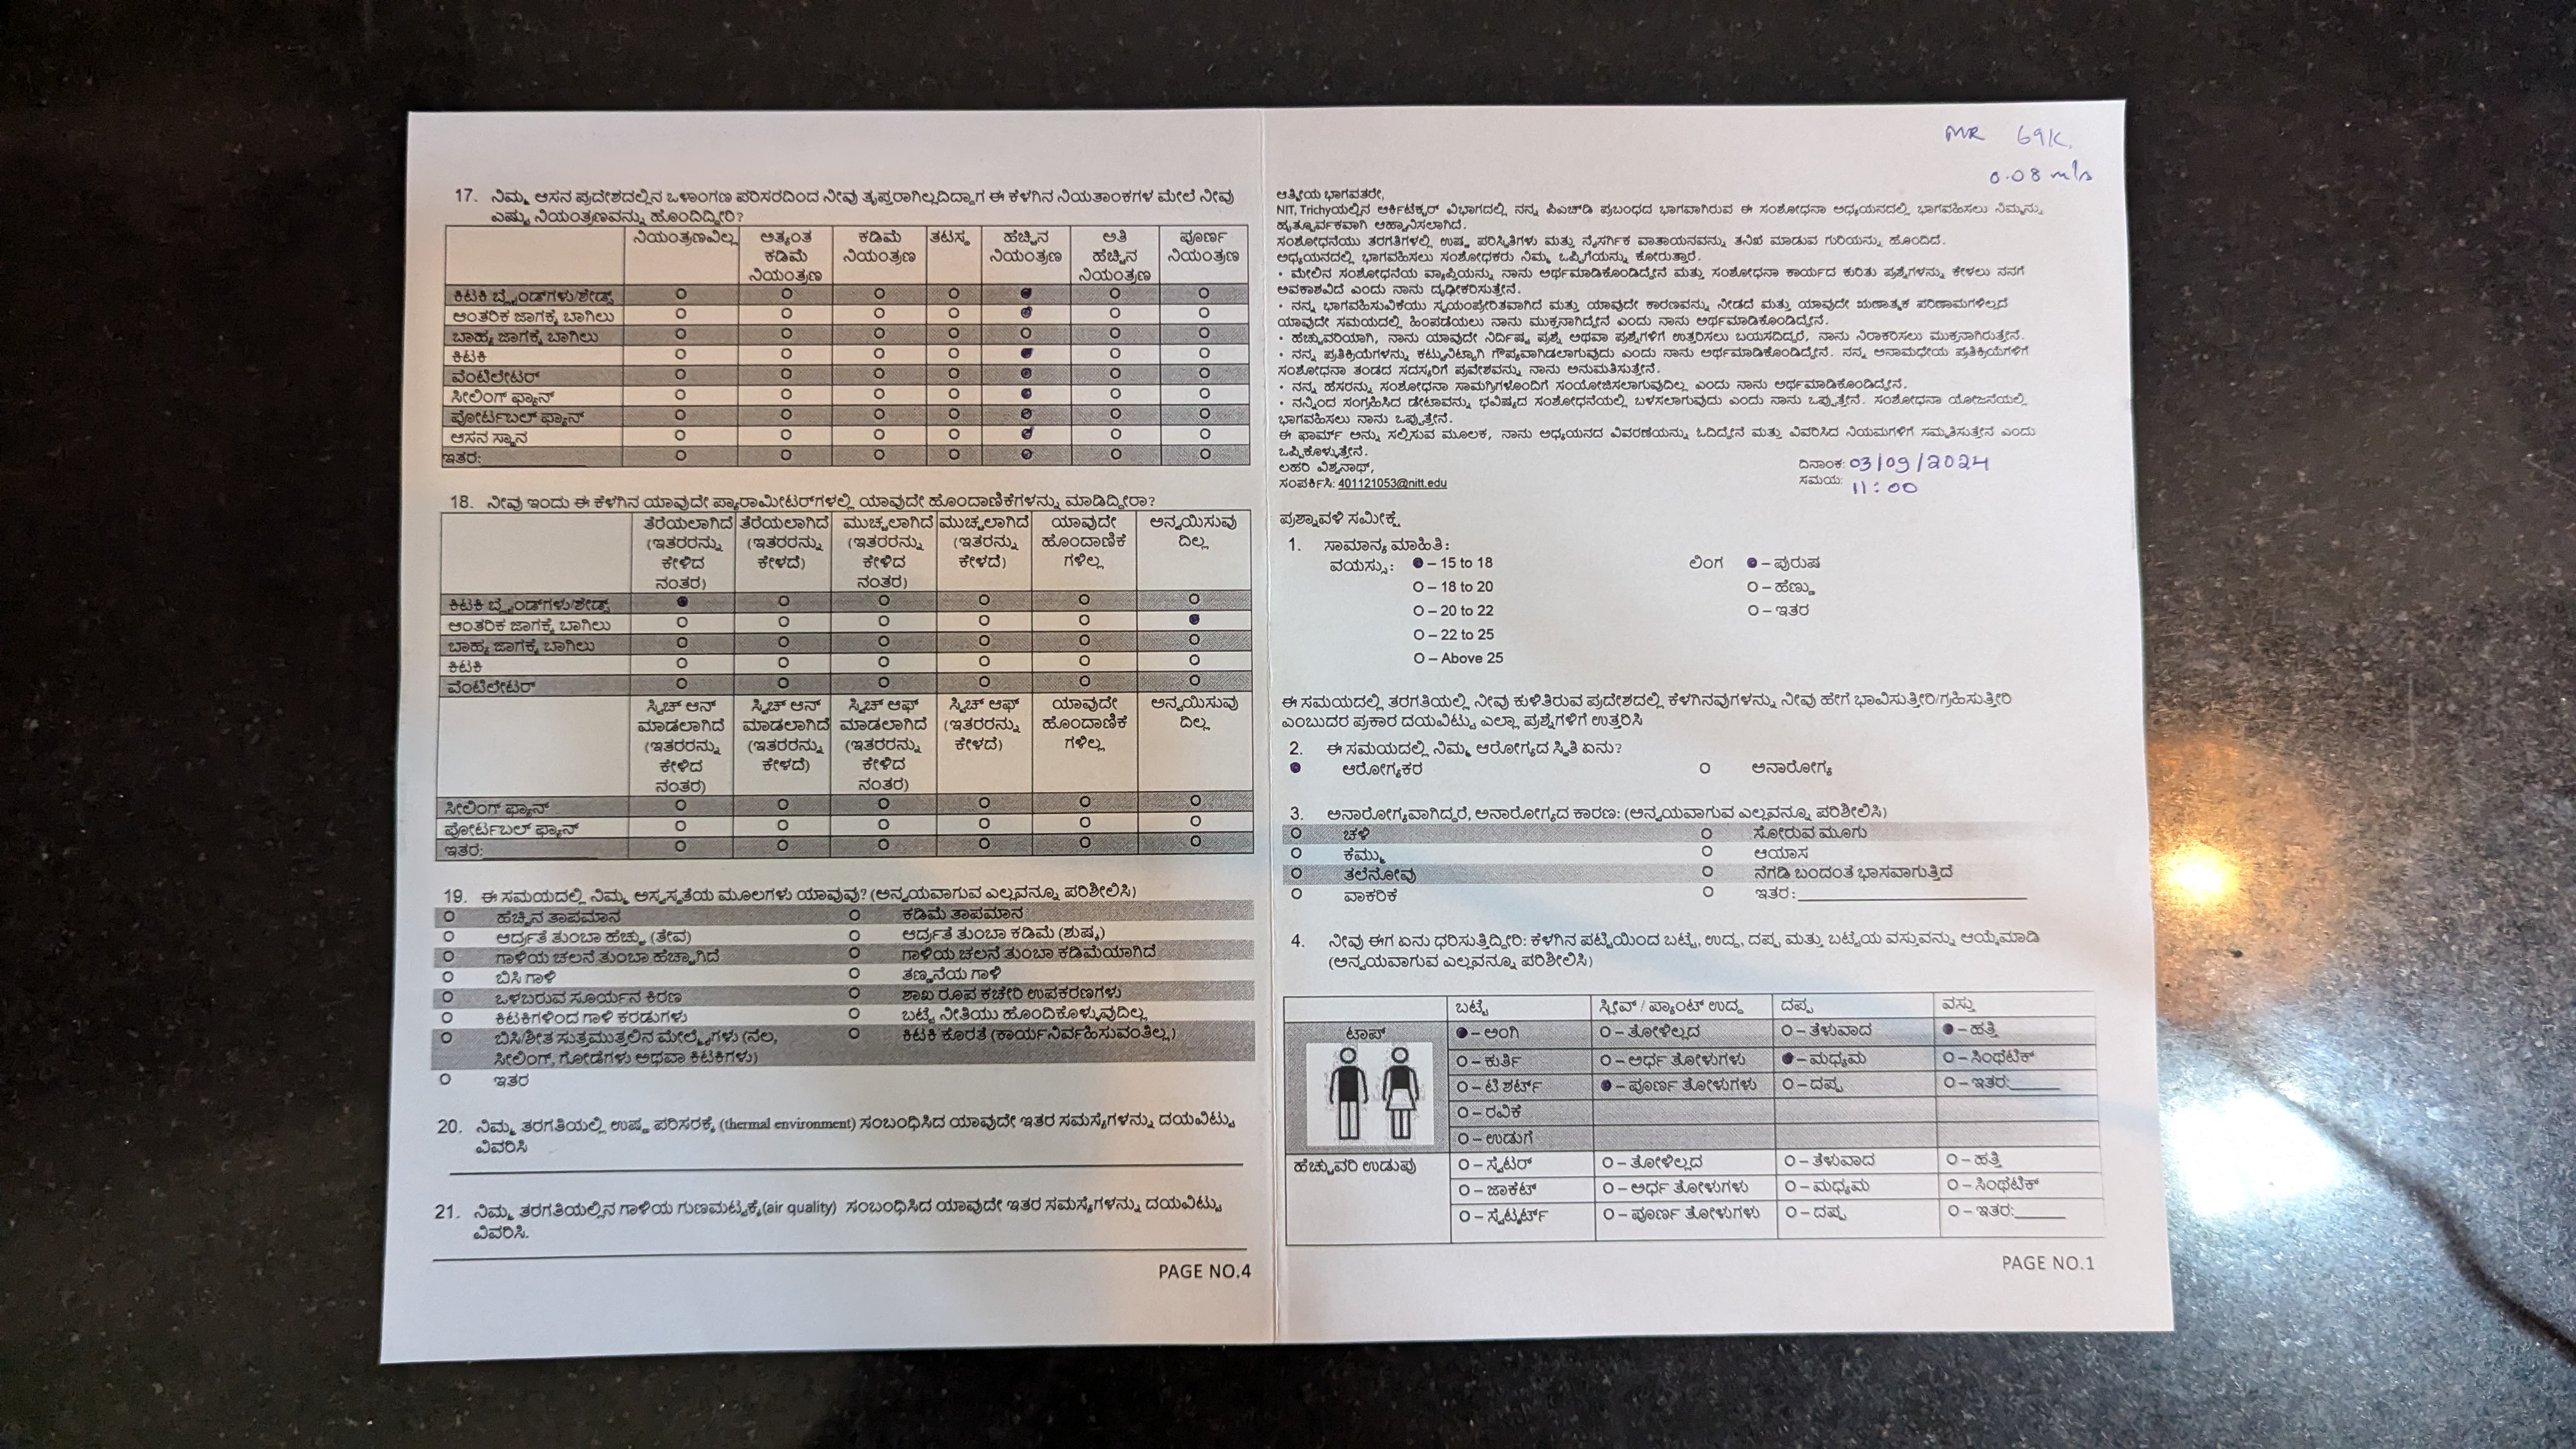 17. ನಿಮ್ಮ ಆಸನ ಪ್ರದೇಶದಲ್ಲಿನ ಒಳಾಂಗಣ ಪರಿಸರದಿಂದ ನೀವು ತೃಪ್ತರಾಗಿಲ್ಲದಿದ್ದಾಗ ಈ ಕೆಳಗಿನ ನಿಯತಾಂಕಗಳ ಮೇಲೆ ನೀವು
ಎಷ್ಟು ನಿಯಂತ್ರಣವನ್ನು ಹೊಂದಿದ್ದೀರಿ?
ನಿಯಂತ್ರಣವಿಲ್ಲ ಅತ್ಯಂತ ಕಡಿಮೆ ನಿಯಂತ್ರಣ ಕಡಿಮೆ ನಿಯಂತ್ರಣ ತಟಸ್ಥ ಹೆಚ್ಚಿನ ನಿಯಂತ್ರಣ ಅತಿ ಹೆಚ್ಚಿನ ನಿಯಂತ್ರಣ ಪೂರ್ಣ ನಿಯಂತ್ರಣ
ಕಿಟಕಿ ಬ್ಲೈಂಡ್‌ಗಳು/ಶೇಡ್ಸ್
ಆಂತರಿಕ ಜಾಗಕ್ಕೆ ಬಾಗಿಲು
ಬಾಹ್ಯ ಜಾಗಕ್ಕೆ ಬಾಗಿಲು
ಕಿಟಕಿ
ವೆಂಟಿಲೇಟರ್
ಸೀಲಿಂಗ್ ಫ್ಯಾನ್
ಪೋರ್ಟಬಲ್ ಫ್ಯಾನ್
ಆಸನ ಸ್ಥಾನ
ಇತರ:
18. ನೀವು ಇಂದು ಈ ಕೆಳಗಿನ ಯಾವುದೇ ಪ್ಯಾರಾಮೀಟರ್‌ಗಳಲ್ಲಿ ಯಾವುದೇ ಹೊಂದಾಣಿಕೆಗಳನ್ನು ಮಾಡಿದ್ದೀರಾ?
ತೆರೆಯಲಾಗಿದೆ (ಇತರರನ್ನು ಕೇಳಿದ ನಂತರ) ತೆರೆಯಲಾಗಿದೆ (ಇತರರನ್ನು ಕೇಳದೆ) ಮುಚ್ಚಲಾಗಿದೆ (ಇತರರನ್ನು ಕೇಳಿದ ನಂತರ) ಮುಚ್ಚಲಾಗಿದೆ (ಇತರರನ್ನು ಕೇಳದೆ) ಯಾವುದೇ ಹೊಂದಾಣಿಕೆ ಗಳಿಲ್ಲ ಅನ್ವಯಿಸುವು ದಿಲ್ಲ
ಕಿಟಕಿ ಬ್ಲೈಂಡ್‌ಗಳು/ಶೇಡ್ಸ್
ಆಂತರಿಕ ಜಾಗಕ್ಕೆ ಬಾಗಿಲು
ಬಾಹ್ಯ ಜಾಗಕ್ಕೆ ಬಾಗಿಲು
ಕಿಟಕಿ
ವೆಂಟಿಲೇಟರ್
ಸ್ವಿಚ್ ಆನ್ ಮಾಡಲಾಗಿದೆ (ಇತರರನ್ನು ಕೇಳಿದ ನಂತರ) ಸ್ವಿಚ್ ಆನ್ ಮಾಡಲಾಗಿದೆ (ಇತರರನ್ನು ಕೇಳದೆ) ಸ್ವಿಚ್ ಆಫ್ ಮಾಡಲಾಗಿದೆ (ಇತರರನ್ನು ಕೇಳಿದ ನಂತರ) ಸ್ವಿಚ್ ಆಫ್ (ಇತರರನ್ನು ಕೇಳದೆ) ಯಾವುದೇ ಹೊಂದಾಣಿಕೆ ಗಳಿಲ್ಲ ಅನ್ವಯಿಸುವು ದಿಲ್ಲ
ಸೀಲಿಂಗ್ ಫ್ಯಾನ್
ಪೋರ್ಟಬಲ್ ಫ್ಯಾನ್
ಇತರ:
19. ಈ ಸಮಯದಲ್ಲಿ ನಿಮ್ಮ ಅಸ್ವಸ್ಥತೆಯ ಮೂಲಗಳು ಯಾವುವು? (ಅನ್ವಯವಾಗುವ ಎಲ್ಲವನ್ನೂ ಪರಿಶೀಲಿಸಿ)
ಹೆಚ್ಚಿನ ತಾಪಮಾನ ಕಡಿಮೆ ತಾಪಮಾನ
ಆರ್ದ್ರತೆ ತುಂಬಾ ಹೆಚ್ಚು (ತೇವ) ಆರ್ದ್ರತೆ ತುಂಬಾ ಕಡಿಮೆ (ಶುಷ್ಕ)
ಗಾಳಿಯ ಚಲನೆ ತುಂಬಾ ಹೆಚ್ಚಾಗಿದೆ ಗಾಳಿಯ ಚಲನೆ ತುಂಬಾ ಕಡಿಮೆಯಾಗಿದೆ
ಬಿಸಿ ಗಾಳಿ ತಣ್ಣನೆಯ ಗಾಳಿ
ಒಳಬರುವ ಸೂರ್ಯನ ಕಿರಣ ಶಾಖ ರೂಪ ಕಚೇರಿ ಉಪಕರಣಗಳು
ಕಿಟಕಿಗಳಿಂದ ಗಾಳಿ ಕರಡುಗಳು ಬಟ್ಟೆ ನೀತಿಯು ಹೊಂದಿಕೊಳ್ಳುವುದಿಲ್ಲ
ಬಿಸಿ/ಶೀತ ಸುತ್ತಮುತ್ತಲಿನ ಮೇಲ್ಮೈಗಳು (ನೆಲ, ಕಿಟಕಿ ಕೊರತೆ (ಕಾರ್ಯನಿರ್ವಹಿಸುವಂತಿಲ್ಲ)
ಸೀಲಿಂಗ್, ಗೋಡೆಗಳು ಅಥವಾ ಕಿಟಕಿಗಳು)
ಇತರ
20. ನಿಮ್ಮ ತರಗತಿಯಲ್ಲಿ ಉಷ್ಣ ಪರಿಸರಕ್ಕೆ (thermal environment) ಸಂಬಂಧಿಸಿದ ಯಾವುದೇ ಇತರ ಸಮಸ್ಯೆಗಳನ್ನು ದಯವಿಟ್ಟು
ವಿವರಿಸಿ
21. ನಿಮ್ಮ ತರಗತಿಯಲ್ಲಿನ ಗಾಳಿಯ ಗುಣಮಟ್ಟಕ್ಕೆ(air quality) ಸಂಬಂಧಿಸಿದ ಯಾವುದೇ ಇತರ ಸಮಸ್ಯೆಗಳನ್ನು ದಯವಿಟ್ಟು
ವಿವರಿಸಿ.
PAGE NO.4
MR 69K.
0.08 m/s
ಆತ್ಮೀಯ ಭಾಗವತರೇ,
NIT, Trichyಯಲ್ಲಿನ ಆರ್ಕಿಟೆಕ್ಚರ್ ವಿಭಾಗದಲ್ಲಿ ನನ್ನ ಪಿಎಚ್‌ಡಿ ಪ್ರಬಂಧದ ಭಾಗವಾಗಿರುವ ಈ ಸಂಶೋಧನಾ ಅಧ್ಯಯನದಲ್ಲಿ ಭಾಗವಹಿಸಲು ನಿಮ್ಮನ್ನು
ಹೃತ್ಪೂರ್ವಕವಾಗಿ ಆಹ್ವಾನಿಸಲಾಗಿದೆ.
ಸಂಶೋಧನೆಯು ತರಗತಿಗಳಲ್ಲಿ ಉಷ್ಣ ಪರಿಸ್ಥಿತಿಗಳು ಮತ್ತು ನೈಸರ್ಗಿಕ ವಾತಾಯನವನ್ನು ತನಿಖೆ ಮಾಡುವ ಗುರಿಯನ್ನು ಹೊಂದಿದೆ.
ಅಧ್ಯಯನದಲ್ಲಿ ಭಾಗವಹಿಸಲು ಸಂಶೋಧಕರು ನಿಮ್ಮ ಒಪ್ಪಿಗೆಯನ್ನು ಕೋರುತ್ತಾರೆ.
• ಮೇಲಿನ ಸಂಶೋಧನೆಯ ವ್ಯಾಪ್ತಿಯನ್ನು ನಾನು ಅರ್ಥಮಾಡಿಕೊಂಡಿದ್ದೇನೆ ಮತ್ತು ಸಂಶೋಧನಾ ಕಾರ್ಯದ ಕುರಿತು ಪ್ರಶ್ನೆಗಳನ್ನು ಕೇಳಲು ನನಗೆ
ಅವಕಾಶವಿದೆ ಎಂದು ನಾನು ದೃಢೀಕರಿಸುತ್ತೇನೆ.
• ನನ್ನ ಭಾಗವಹಿಸುವಿಕೆಯು ಸ್ವಯಂಪ್ರೇರಿತವಾಗಿದೆ ಮತ್ತು ಯಾವುದೇ ಕಾರಣವನ್ನು ನೀಡದೆ ಮತ್ತು ಯಾವುದೇ ಋಣಾತ್ಮಕ ಪರಿಣಾಮಗಳಿಲ್ಲದೆ
ಯಾವುದೇ ಸಮಯದಲ್ಲಿ ಹಿಂಪಡೆಯಲು ನಾನು ಮುಕ್ತನಾಗಿದ್ದೇನೆ ಎಂದು ನಾನು ಅರ್ಥಮಾಡಿಕೊಂಡಿದ್ದೇನೆ.
• ಹೆಚ್ಚುವರಿಯಾಗಿ, ನಾನು ಯಾವುದೇ ನಿರ್ದಿಷ್ಟ ಪ್ರಶ್ನೆ ಅಥವಾ ಪ್ರಶ್ನೆಗಳಿಗೆ ಉತ್ತರಿಸಲು ಬಯಸದಿದ್ದರೆ, ನಾನು ನಿರಾಕರಿಸಲು ಮುಕ್ತನಾಗಿರುತ್ತೇನೆ.
• ನನ್ನ ಪ್ರತಿಕ್ರಿಯೆಗಳನ್ನು ಕಟ್ಟುನಿಟ್ಟಾಗಿ ಗೌಪ್ಯವಾಗಿಡಲಾಗುವುದು ಎಂದು ನಾನು ಅರ್ಥಮಾಡಿಕೊಂಡಿದ್ದೇನೆ. ನನ್ನ ಅನಾಮಧೇಯ ಪ್ರತಿಕ್ರಿಯೆಗಳಿಗೆ
ಸಂಶೋಧನಾ ತಂಡದ ಸದಸ್ಯರಿಗೆ ಪ್ರವೇಶವನ್ನು ನಾನು ಅನುಮತಿಸುತ್ತೇನೆ.
• ನನ್ನ ಹೆಸರನ್ನು ಸಂಶೋಧನಾ ಸಾಮಗ್ರಿಗಳೊಂದಿಗೆ ಸಂಯೋಜಿಸಲಾಗುವುದಿಲ್ಲ ಎಂದು ನಾನು ಅರ್ಥಮಾಡಿಕೊಂಡಿದ್ದೇನೆ.
• ನನ್ನಿಂದ ಸಂಗ್ರಹಿಸಿದ ಡೇಟಾವನ್ನು ಭವಿಷ್ಯದ ಸಂಶೋಧನೆಯಲ್ಲಿ ಬಳಸಲಾಗುವುದು ಎಂದು ನಾನು ಒಪ್ಪುತ್ತೇನೆ. ಸಂಶೋಧನಾ ಯೋಜನೆಯಲ್ಲಿ
ಭಾಗವಹಿಸಲು ನಾನು ಒಪ್ಪುತ್ತೇನೆ.
ಈ ಫಾರ್ಮ್ ಅನ್ನು ಸಲ್ಲಿಸುವ ಮೂಲಕ, ನಾನು ಅಧ್ಯಯನದ ವಿವರಣೆಯನ್ನು ಓದಿದ್ದೇನೆ ಮತ್ತು ವಿವರಿಸಿದ ನಿಯಮಗಳಿಗೆ ಸಮ್ಮತಿಸುತ್ತೇನೆ ಎಂದು
ಒಪ್ಪಿಕೊಳ್ಳುತ್ತೇನೆ.
ಲಹರಿ ವಿಶ್ವನಾಥ್, ದಿನಾಂಕ: 03/09/2024
ಸಂಪರ್ಕಿಸಿ: 401121053@nitt.edu ಸಮಯ: 11:00
ಪ್ರಶ್ನಾವಳಿ ಸಮೀಕ್ಷೆ
1. ಸಾಮಾನ್ಯ ಮಾಹಿತಿ:
ವಯಸ್ಸು: – 15 to 18 ಲಿಂಗ – ಪುರುಷ
– 18 to 20 – ಹೆಣ್ಣು
– 20 to 22 – ಇತರ
– 22 to 25
– Above 25
ಈ ಸಮಯದಲ್ಲಿ ತರಗತಿಯಲ್ಲಿ ನೀವು ಕುಳಿತಿರುವ ಪ್ರದೇಶದಲ್ಲಿ ಕೆಳಗಿನವುಗಳನ್ನು ನೀವು ಹೇಗೆ ಭಾವಿಸುತ್ತೀರಿ/ಗ್ರಹಿಸುತ್ತೀರಿ
ಎಂಬುದರ ಪ್ರಕಾರ ದಯವಿಟ್ಟು ಎಲ್ಲಾ ಪ್ರಶ್ನೆಗಳಿಗೆ ಉತ್ತರಿಸಿ
2. ಈ ಸಮಯದಲ್ಲಿ ನಿಮ್ಮ ಆರೋಗ್ಯದ ಸ್ಥಿತಿ ಏನು?
ಆರೋಗ್ಯಕರ ಅನಾರೋಗ್ಯ
3. ಅನಾರೋಗ್ಯವಾಗಿದ್ದರೆ, ಅನಾರೋಗ್ಯದ ಕಾರಣ: (ಅನ್ವಯವಾಗುವ ಎಲ್ಲವನ್ನೂ ಪರಿಶೀಲಿಸಿ)
ಚಳಿ ಸೋರುವ ಮೂಗು
ಕೆಮ್ಮು ಆಯಾಸ
ತಲೆನೋವು ನೆಗಡಿ ಬಂದಂತೆ ಭಾಸವಾಗುತ್ತಿದೆ
ವಾಕರಿಕೆ ಇತರ:
4. ನೀವು ಈಗ ಏನು ಧರಿಸುತ್ತಿದ್ದೀರಿ: ಕೆಳಗಿನ ಪಟ್ಟಿಯಿಂದ ಬಟ್ಟೆ, ಉದ್ದ, ದಪ್ಪ ಮತ್ತು ಬಟ್ಟೆಯ ವಸ್ತುವನ್ನು ಆಯ್ಕೆಮಾಡಿ
(ಅನ್ವಯವಾಗುವ ಎಲ್ಲವನ್ನೂ ಪರಿಶೀಲಿಸಿ)
ಬಟ್ಟೆ ಸ್ಲೀವ್ / ಪ್ಯಾಂಟ್ ಉದ್ದ ದಪ್ಪ ವಸ್ತು
ಟಾಪ್ – ಅಂಗಿ – ತೋಳಿಲ್ಲದ – ತೆಳುವಾದ – ಹತ್ತಿ
– ಕುರ್ತಿ – ಅರ್ಧ ತೋಳುಗಳು – ಮಧ್ಯಮ – ಸಿಂಥೆಟಿಕ್
– ಟಿ ಶರ್ಟ್ – ಪೂರ್ಣ ತೋಳುಗಳು – ದಪ್ಪ – ಇತರ:
– ರವಿಕೆ
– ಉಡುಗೆ
ಹೆಚ್ಚುವರಿ ಉಡುಪು – ಸ್ವೆಟರ್ – ತೋಳಿಲ್ಲದ – ತೆಳುವಾದ – ಹತ್ತಿ
– ಜಾಕೆಟ್ – ಅರ್ಧ ತೋಳುಗಳು – ಮಧ್ಯಮ – ಸಿಂಥೆಟಿಕ್
– ಸ್ವೆಟ್ಶರ್ಟ್ – ಪೂರ್ಣ ತೋಳುಗಳು – ದಪ್ಪ – ಇತರ:
PAGE NO.1